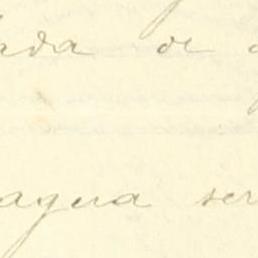 ada de
agua ser